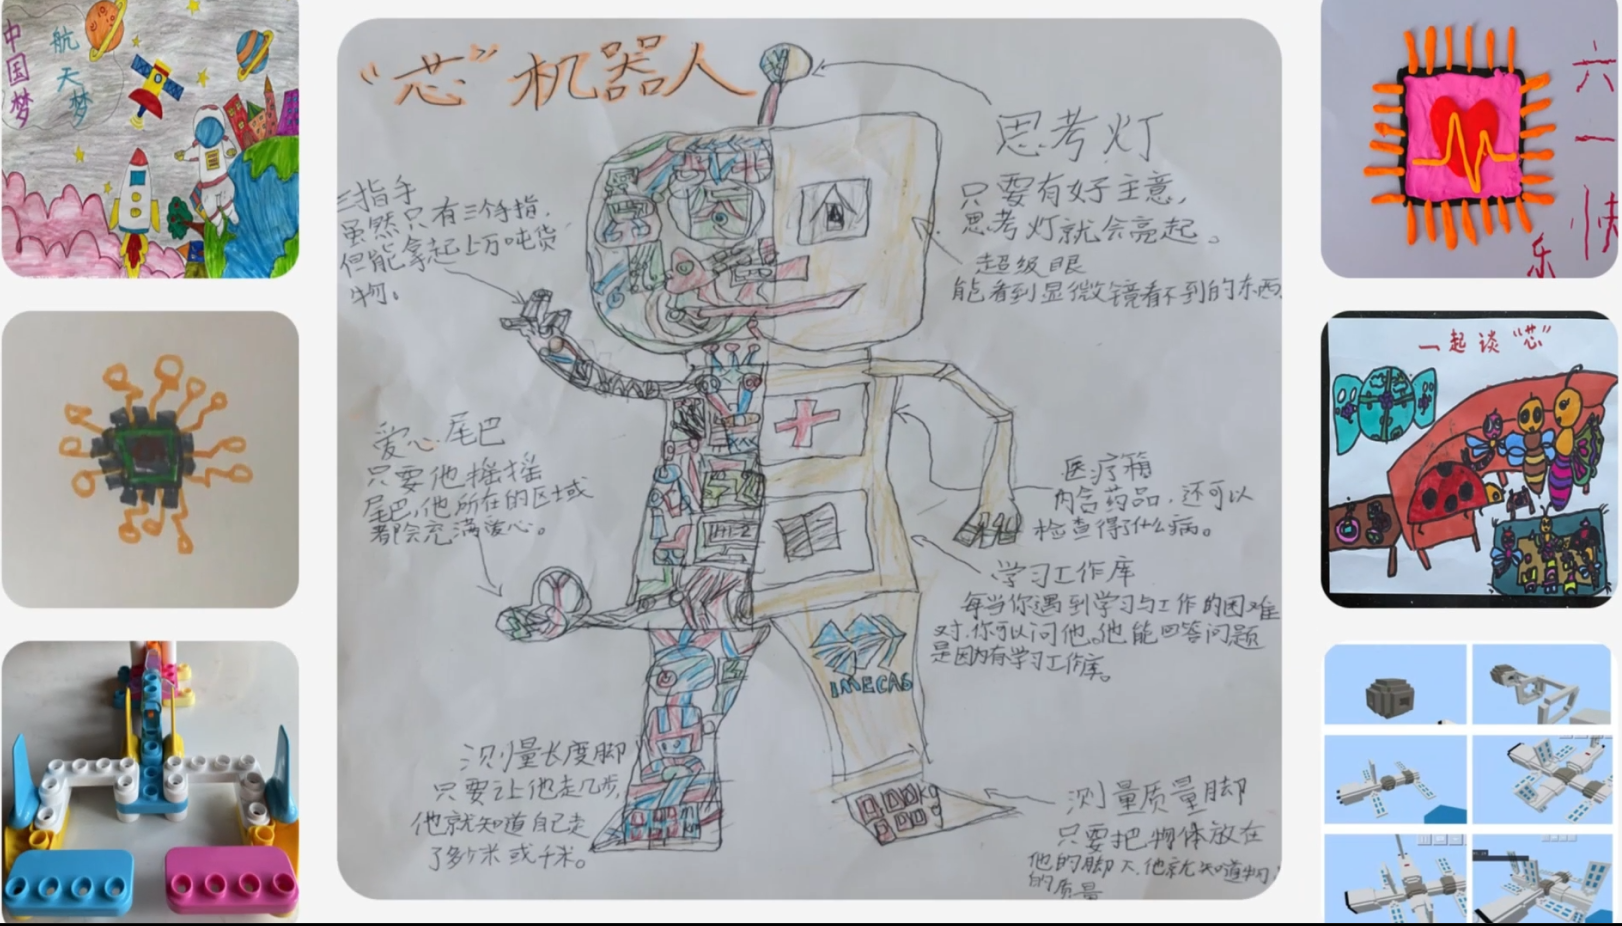 中国梦
航天梦
"芯"机器人
思考灯
只要有好主意,
思考灯就会亮起。
超级眼
能看到显微镜看不到的东西
三指手
虽然只有三个手指,
但能拿起上万吨货
物。
爱心尾巴
只要他摇摇
尾巴,他所在的区域
都会充满爱心。
医疗箱
内含药品,还可以
检查得了什么病。
学习工作库
每当你遇到学习与工作的困难
时,你可以问他。他能回答问题
是因内有学习工作库。
IMECAS
测量长度脚
只要让他走几步,
他就知道自己走
了多少米或千米。
测量质量脚
只要把物体放在
他的脚下,他就知道物
的质量
六一快
乐
一起谈"芯"